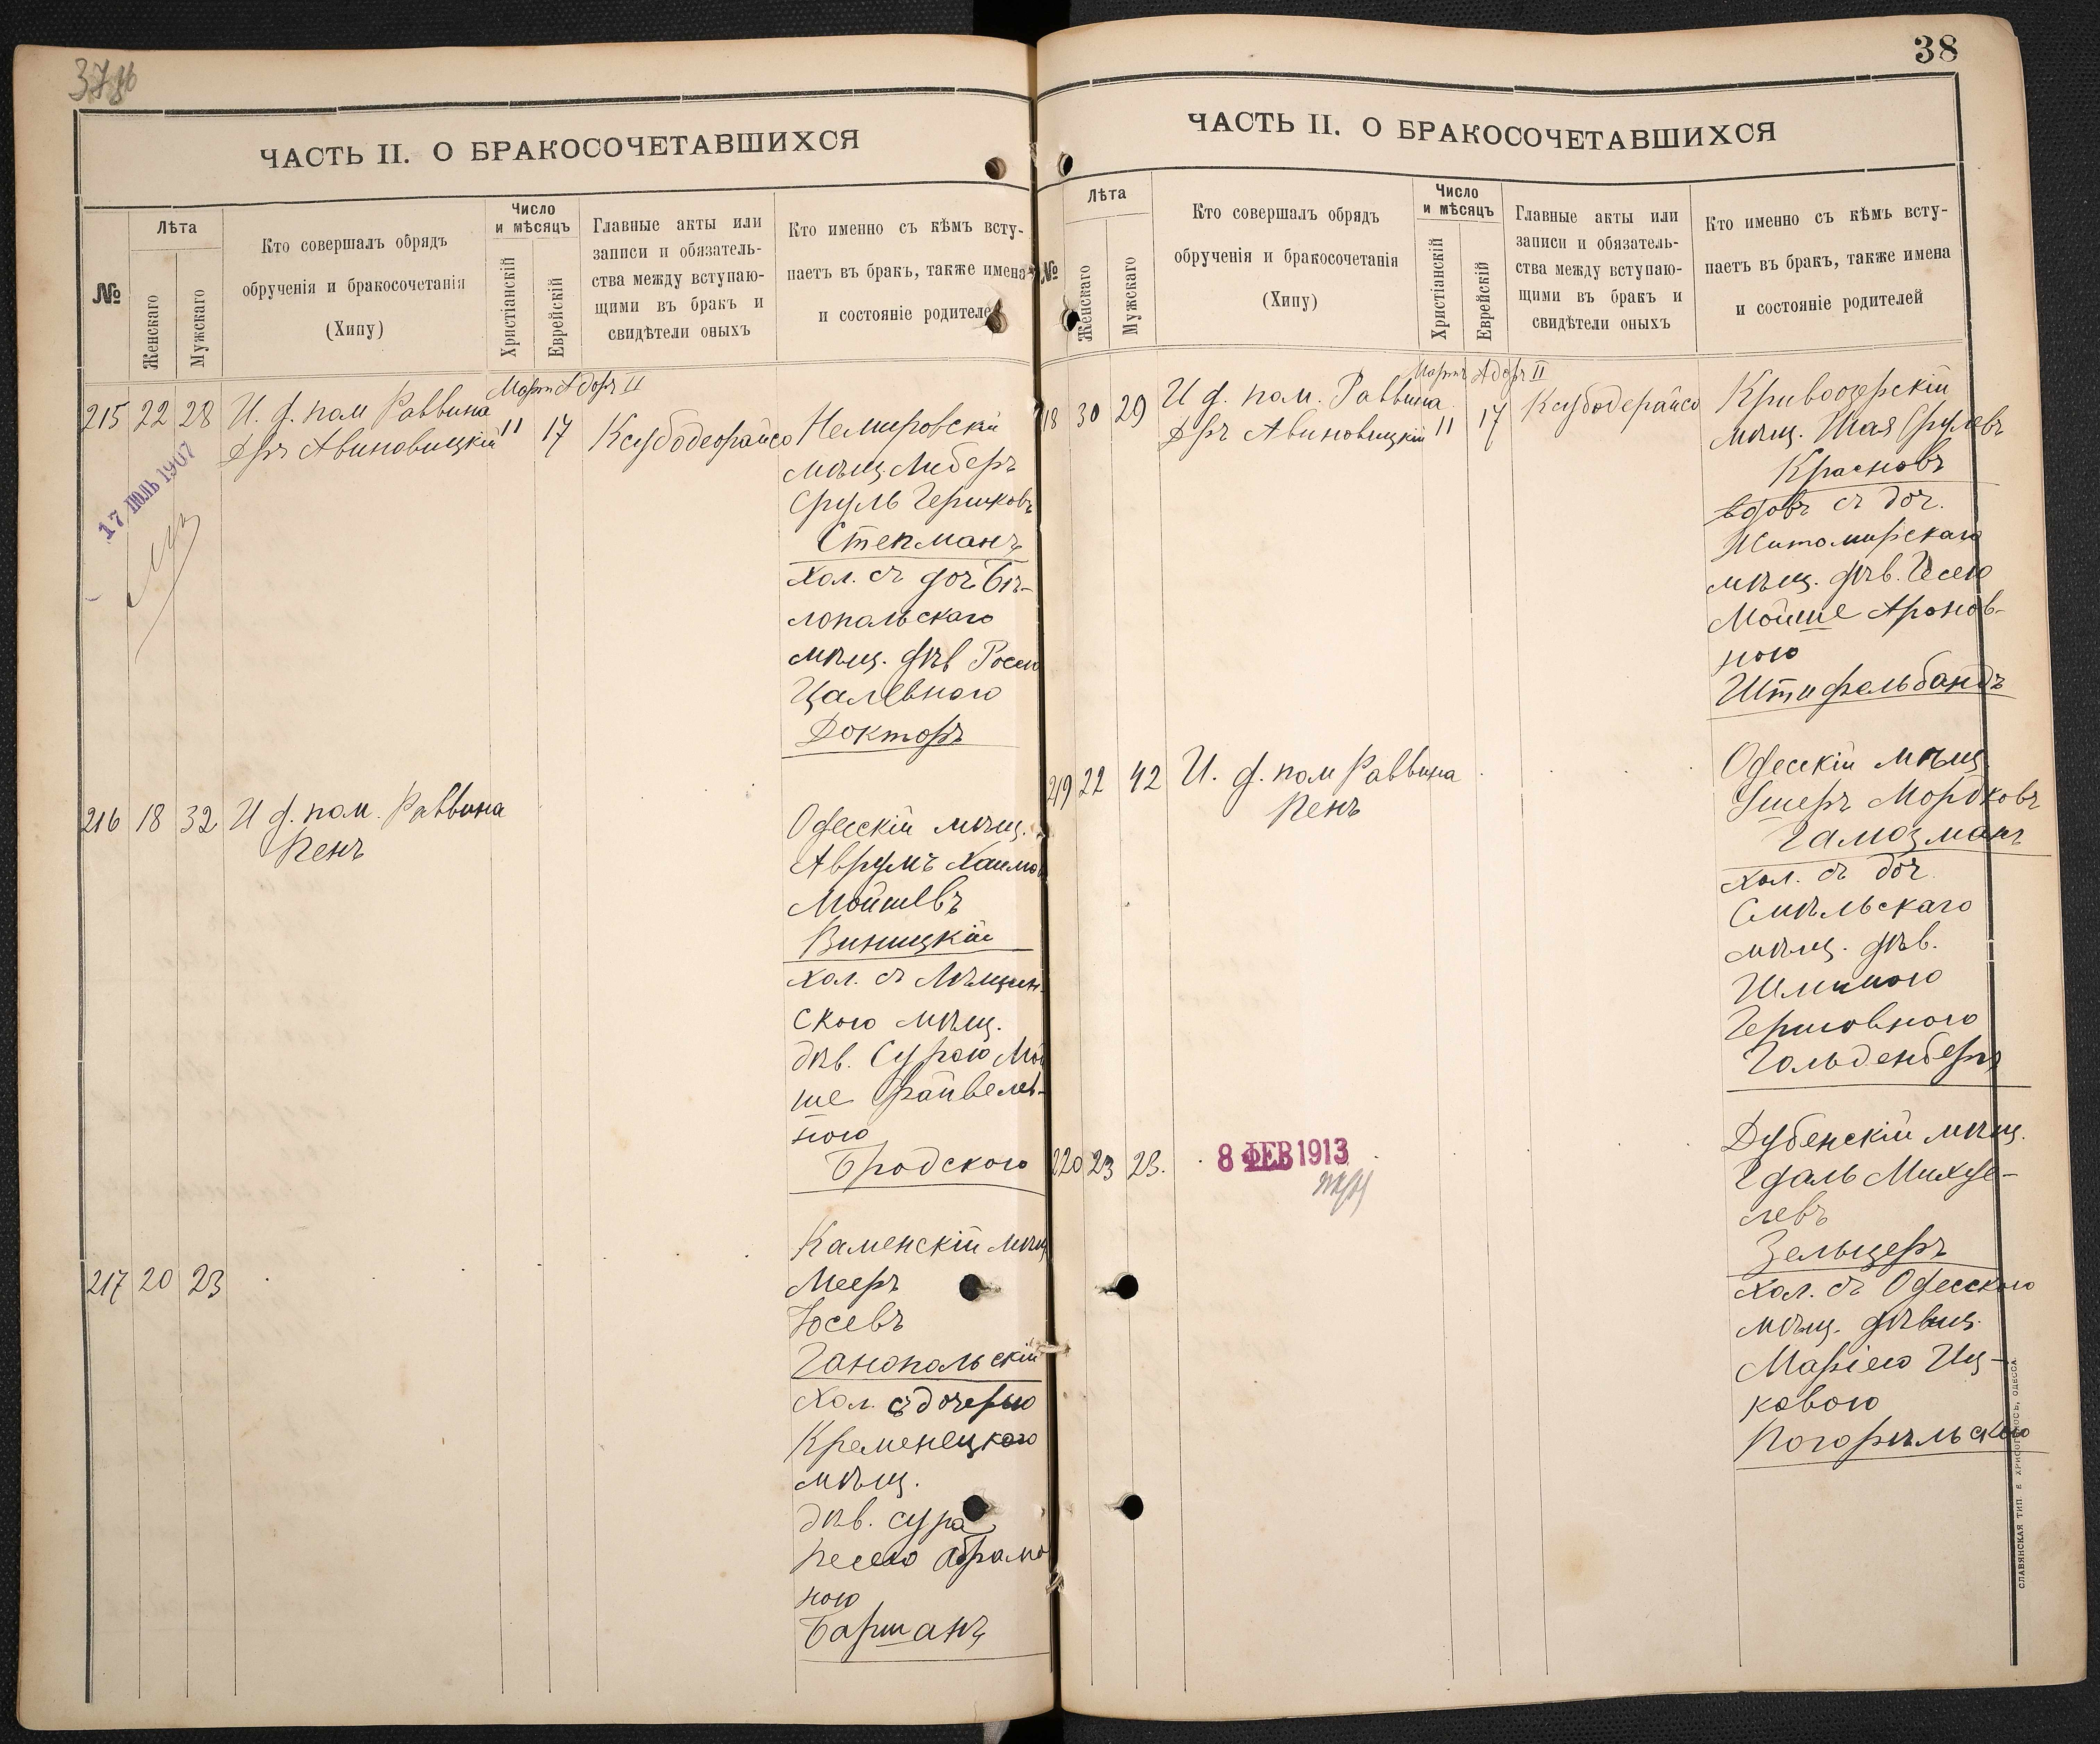 37об
ЧАСТЬ II. О БРАКОСОЧЕТАВШИХСЯ
№
Лѣта
Женскаго
Мужскаго
Кто совершалъ обрядъ
обрученія и бракосочетанія
(Хипу)
Число
и мѣсяцъ
Христіанскій
Еврейскій
Главные акты или
записи и обязатель-
ства между вступаю-
щими въ бракъ и
свидѣтели оныхъ
Кто именно съ кѣмъ всту-
паетъ въ бракъ, также имена
и состояніе родителей
Мартъ Адоръ II
215 22 28 И. д. пом Раввина
Дръ Авиновицкій
11 17 Ксубодеорайсо
Немировскій
мѣщ. Либеръ
Сруль Гершковъ
Стекманъ
хол. съ доч. Бѣ-
лопольскаго
мѣщ. дѣв Россею
Цалевною
Докторъ
17 ІЮЛЬ 1907
216 18 32 И д. пом. Раввина
Пенъ
Одесскій мѣщ.
Аврумъ Хаимъ
Мойшевъ
Виницкій
хол. съ
скою мѣщ.
дѣв. Сурою Мой
ше Файвелев-
ною
Бродскою
217 20 23
Каменскій мѣщ
Мееръ
Іосевъ
Ганопольскій
хол. съ дочерью
Кременецкаго
мѣщ.
дѣв. Сура
Песею Абрамов
ною
Барманъ
38
ЧАСТЬ II. О БРАКОСОЧЕТАВШИХСЯ
№
Лѣта
Женскаго
Мужскаго
Кто совершалъ обрядъ
обрученія и бракосочетанія
(Хипу)
Число
и мѣсяцъ
Христіанскій
Еврейскій
Главные акты или
записи и обязатель-
ства между вступаю-
щими въ бракъ и
свидѣтели оныхъ
Кто именно съ кѣмъ всту-
паетъ въ бракъ, также имена
и состояніе родителей
Мартъ Адоръ II
218 30 29 И д. пом. Раввина
Дръ Авиновицкій
11 17 Ксубодерайсо
Кривоозерскій
мѣщ. Шая Срулевъ
Красновъ
вдовъ съ доч.
Житомирскаго
мѣщ. дѣв. Песею
Мойше Аронов-
ною
Штифельбандъ
219 22 42 И. д. пом Раввина
Пенъ
Одесскій мѣщ.
Ушеръ Мордковъ
Галозманъ
хол. съ доч.
Смѣльскаго
мѣщ. дѣв.
Шлимою
Гершовною
Гольденбергъ
220 23 23.
8 ФЕВ 1913
Дубенскій мѣщ.
Гдаль Михуе-
левъ
Зельцеръ
хол. съ Одесскою
мѣщ. дѣвиц.
Маріею Иц-
ковою
Погорѣльскою
СЛАВЯНСКАЯ ТИП. Е ХРИСОГЕЛОСЪ, ОДЕССА